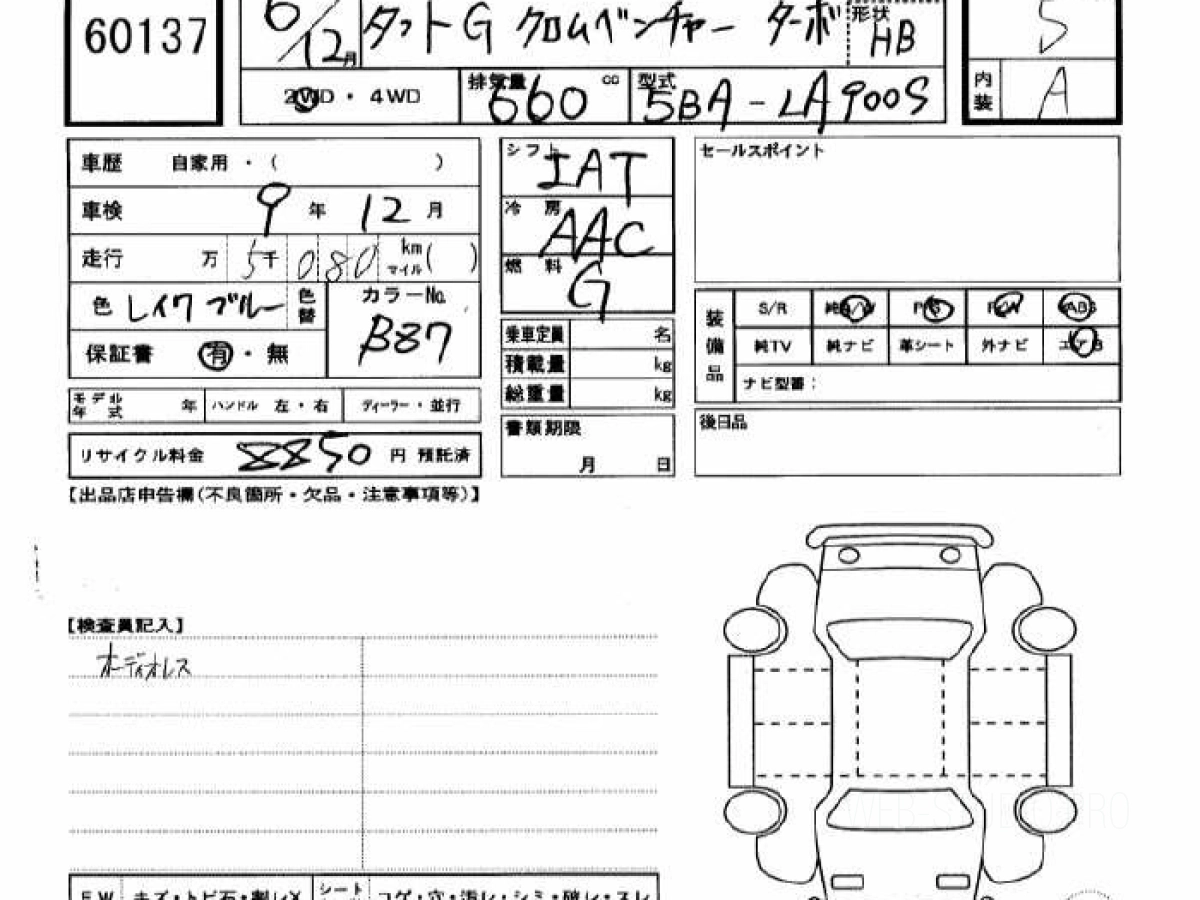 60137
6/12月 タフトG クロムベンチャー ターボ 形状 HB
5
2WD・4WD 排気量 660 cc 型式 5BA-LA900S
内装 A
車歴 自家用・( )
車検 9年 12月
走行 万 5千 080 km マイル ( )
色 レイクブルー 色替 カラーNo. B87
保証書 有・無
モデル年式 年 ハンドル 左・右 ディーラー・並行
リサイクル料金 8850 円 預託済
シフト IAT
冷房 AAC
燃料 G
乗車定員 名
積載量 kg
総重量 kg
書類期限
月 日
セールスポイント
装備品 S/R 純A/W P/S P/W ABS
純TV 純ナビ 革シート 外ナビ エアB
ナビ型番:
後日品
【出品店申告欄(不良箇所・欠品・注意事項等)】
【検査員記入】
オーディオレス
FW キズ・トビ石・割レX シート コゲ・穴・汚レ・シミ・破レ・スレ